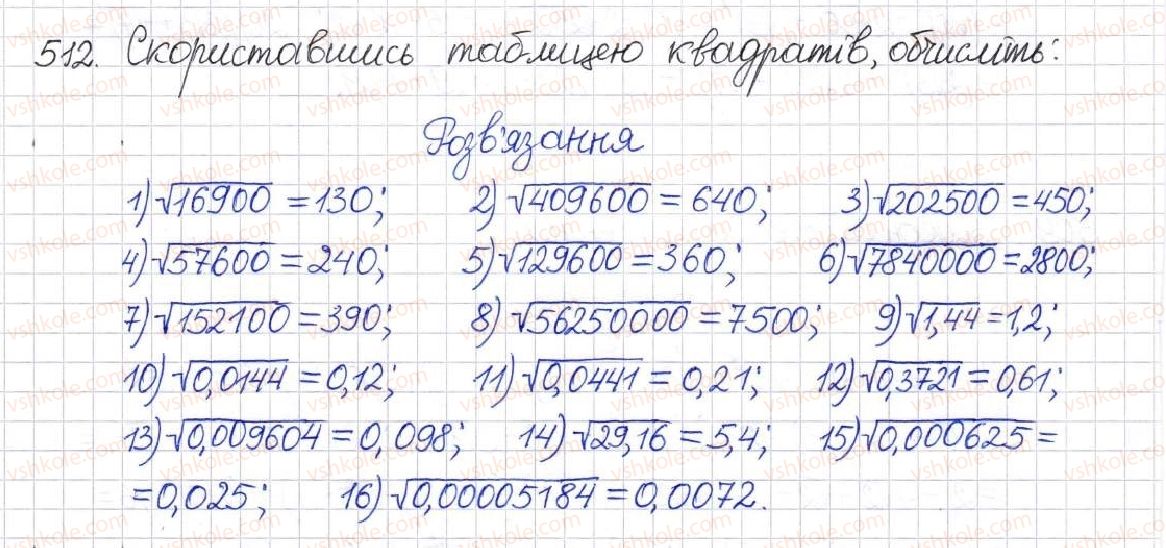 512. Скориставшись таблицею квадратів, обчисліть:
Розв'язання
1) √16900 = 130; 2) √409600 = 640; 3) √202500 = 450;
4) √57600 = 240; 5) √129600 = 360; 6) √7840000 = 2800;
7) √152100 = 390; 8) √56250000 = 7500; 9) √1,44 = 1,2;
10) √0,0144 = 0,12; 11) √0,0441 = 0,21; 12) √0,3721 = 0,61;
13) √0,009604 = 0,098; 14) √29,16 = 5,4; 15) √0,000625 =
= 0,025; 16) √0,00005184 = 0,0072.